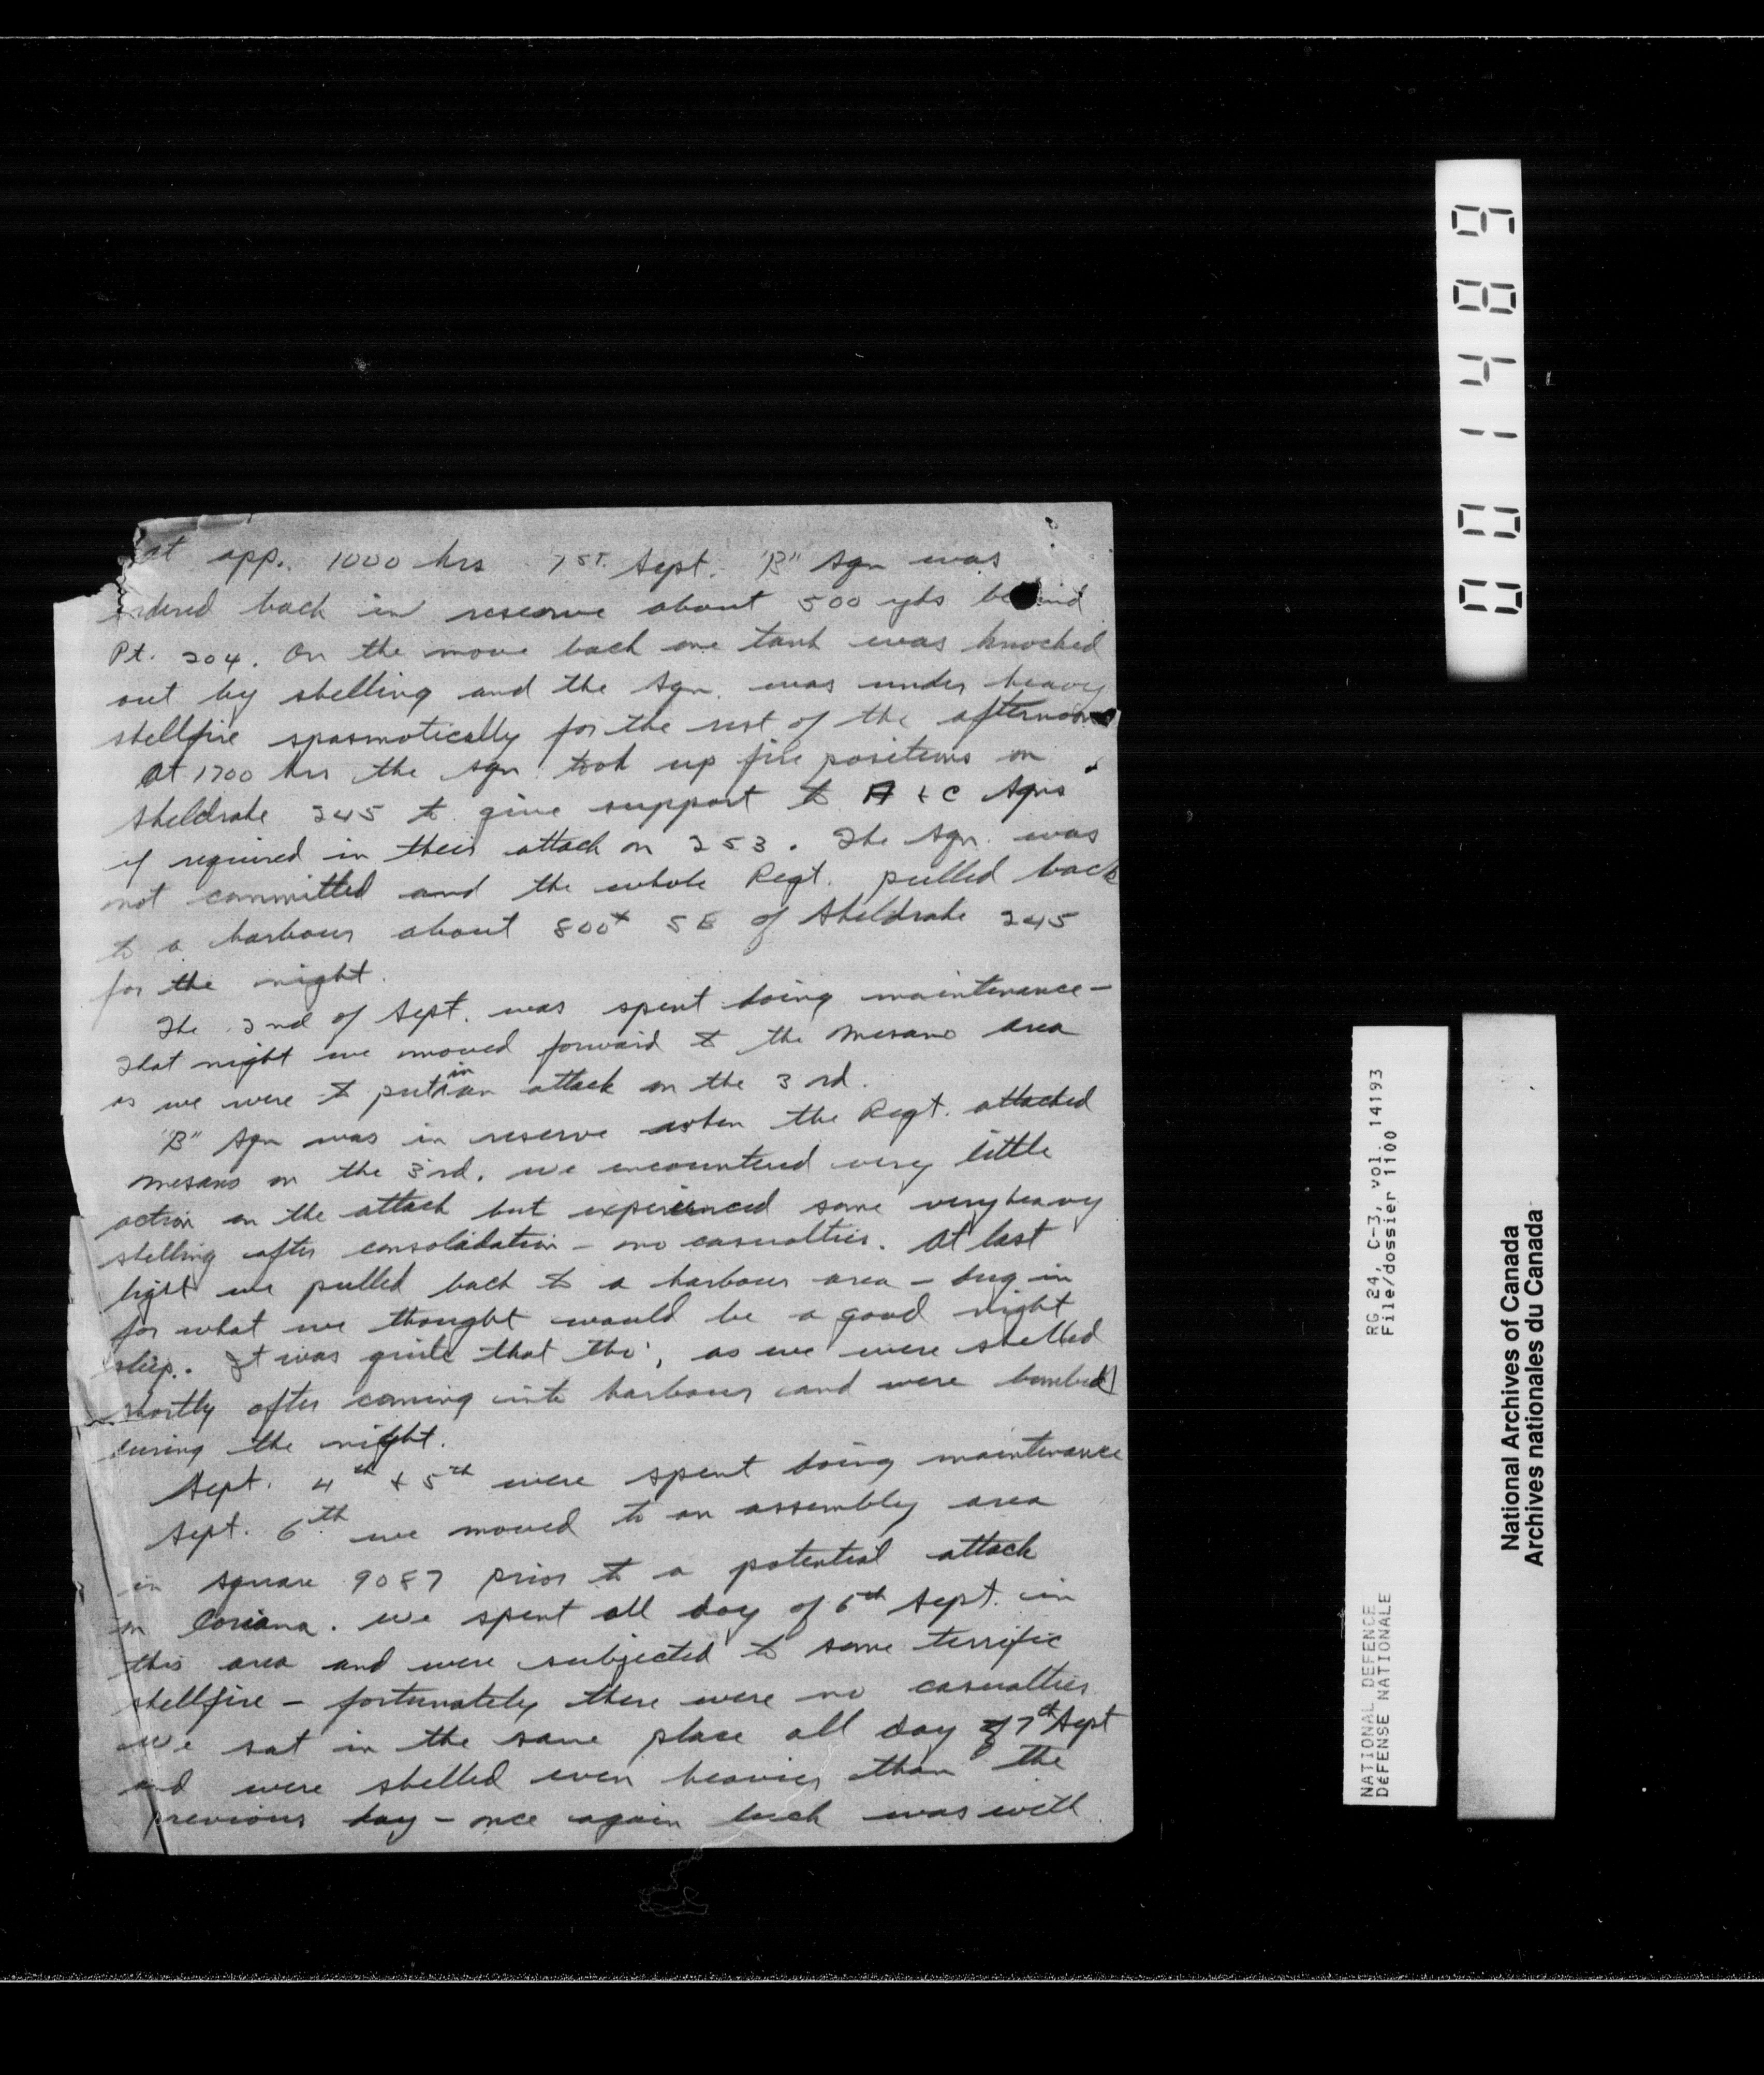 at app. 1000 hrs 1st. Sept. "B" Sqn was
ordered back in reserve about 500 yds behind
Pt. 204. On the move back one tank was knocked
out by shelling and the Sqn. was under heavy
shellfire spasmotically for the rest of the afternoon
At 1700 hrs the Sqn took up fire positions on
Sheldrake 245 to give support to A + C Sqns
if required in their attack on 253. The Sqn. was
not committed and the whole Regt. pulled back
to a harbour about 800x SE of Sheldrake 245
for the night.
The 2nd of Sept. was spent doing maintenance -
That night we moved forward to the Mesano area
as we were to put in an attack on the 3rd.
"B" Sqn was in reserve when the Regt. attacked
Mesano on the 3rd. We encountered very little
action on the attack but experienced some very heavy
shelling after consolidation - no casualties. At last
light we pulled back to a harbour area - dug in
for what we thought would be a good night
sleep. It was quite that tho', as we were shelled
shortly after coming into harbour and were bombed
during the night.
Sept. 4th + 5th were spent doing maintenance
Sept. 6th we moved to an assembly area
in square 9087 prior to a potential attack
on Coriana. We spent all day of 6th Sept. in
this area and were subjected to some terrific
shellfire - fortunately there were no casualties
We sat in the same place all day of 7th Sept
and were shelled even heavier than the
previous day - once again luck was with
001489
RG 24, C-3, vol. 14193
File/dossier 1100
NATIONAL DEFENCE
DÉFENSE NATIONALE
National Archives of Canada
Archives nationales du Canada